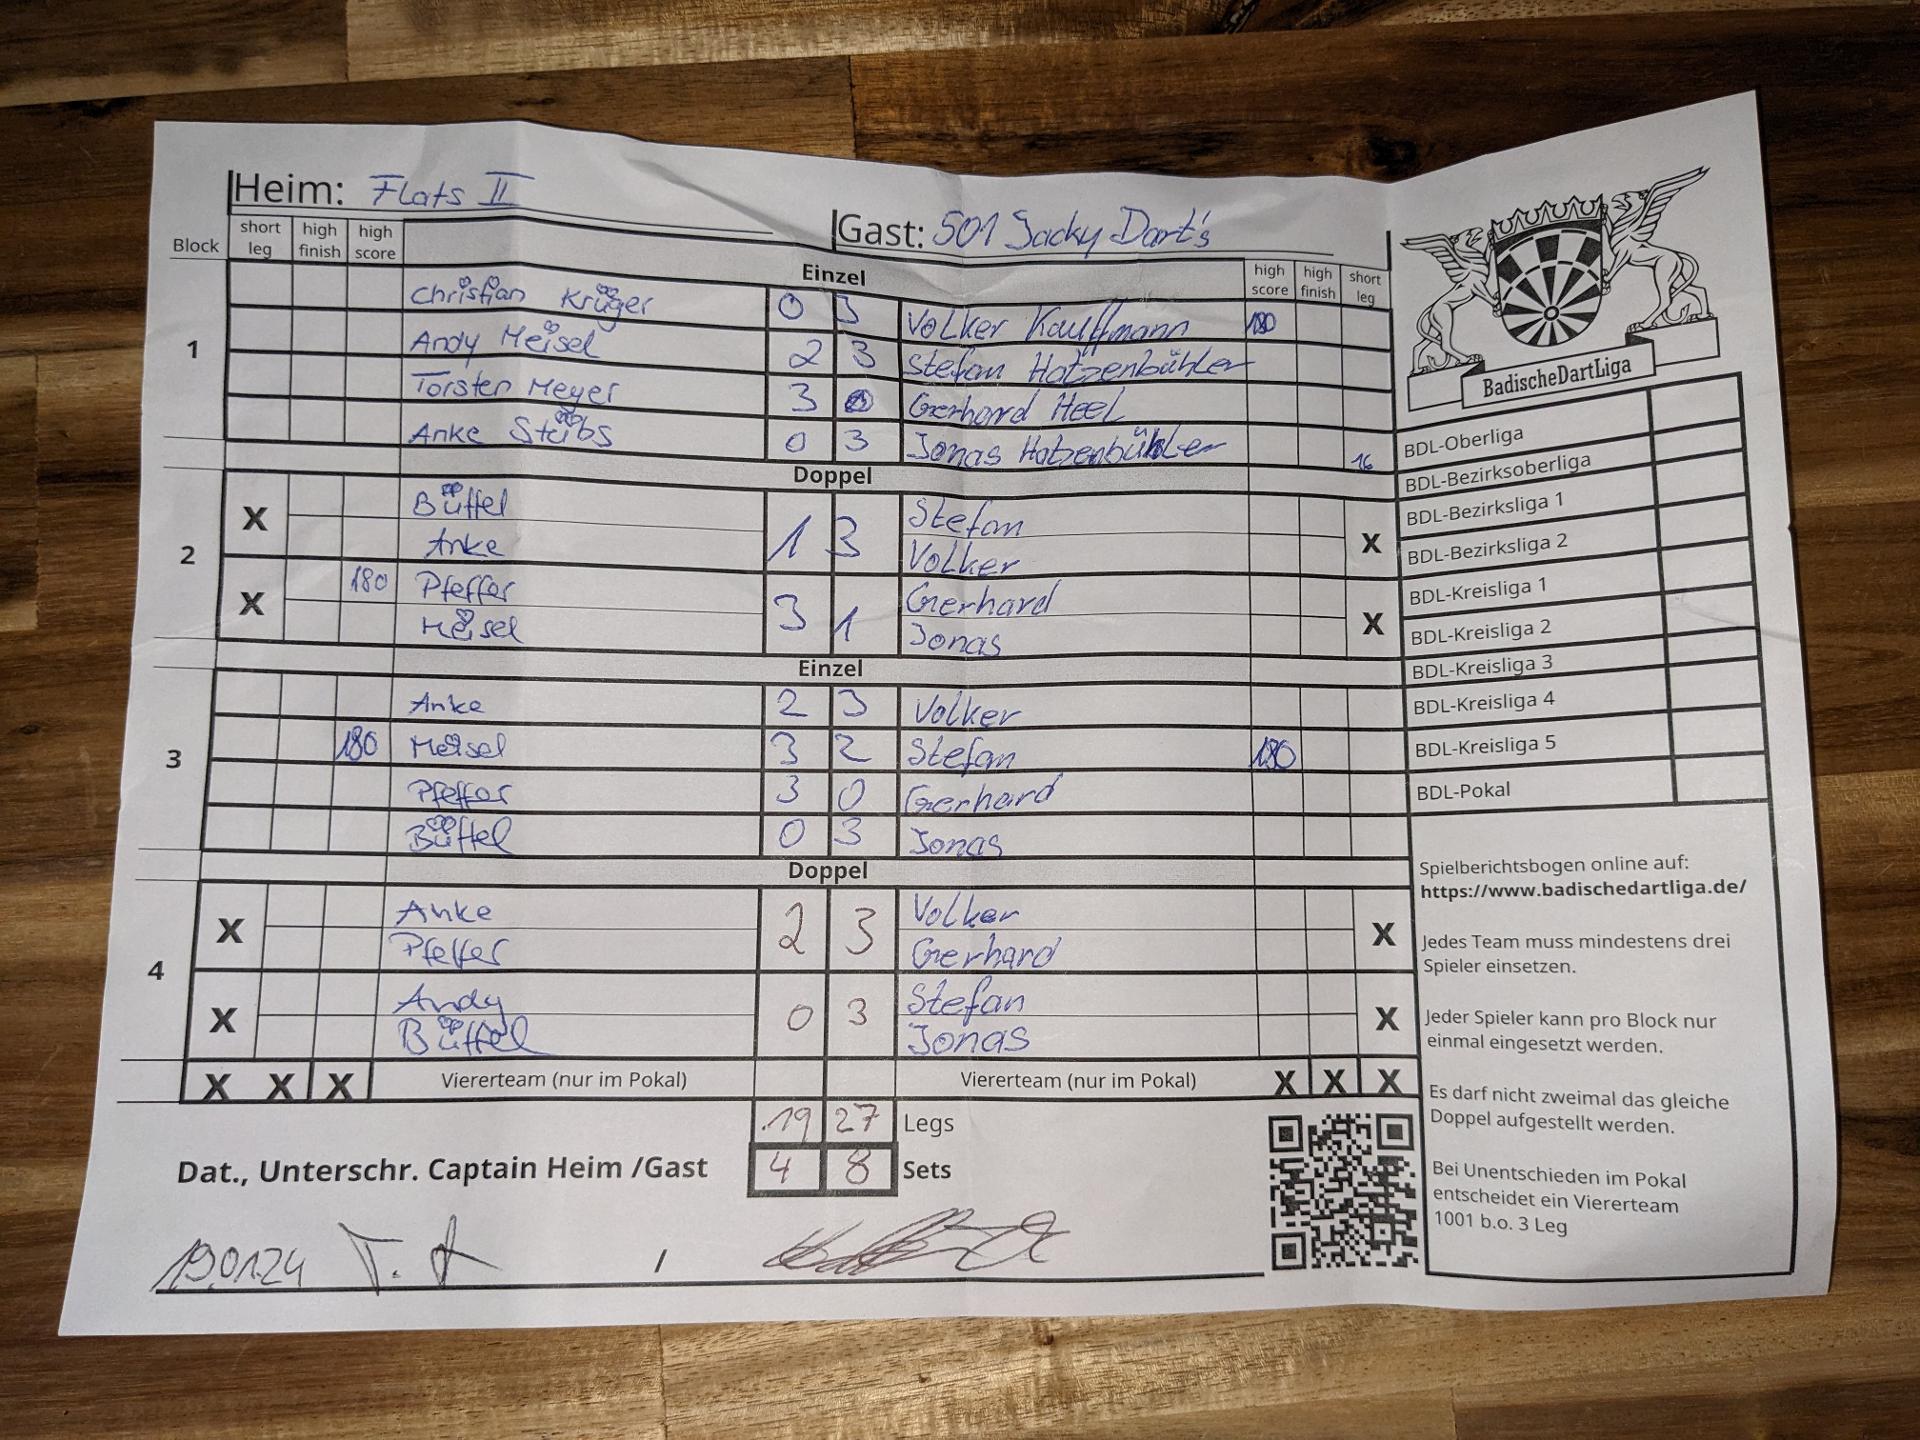 Heim: Flats II
Gast: 501 Jacky Dart's
Block short leg high finish high score Einzel high score high finish short leg
1
Christian Krüger 0 3 Volker Kauffmann 180
Andy Meisel 2 3 Stefan Hatzenbühler
Torsten Meyer 3 0 Gerhard Heel
Anke Stübs 0 3 Jonas Hatzenbühler 16
Doppel
2
X Büffel 1 3 Stefan X
Anke Volker
X 180 Pfeffer 3 1 Gerhard X
Meisel Jonas
Einzel
3
Anke 2 3 Volker
180 Meisel 3 2 Stefan 180
Pfeffer 3 0 Gerhard
Büffel 0 3 Jonas
Doppel
4
X Anke 2 3 Volker X
Pfeffer Gerhard
X Andy 0 3 Stefan X
Büffel Jonas
X X X Viererteam (nur im Pokal) Viererteam (nur im Pokal) X X X
19 27 Legs
Dat., Unterschr. Captain Heim /Gast 4 8 Sets
19.01.24 /
BadischeDartLiga
BDL-Oberliga
BDL-Bezirksoberliga
BDL-Bezirksliga 1
BDL-Bezirksliga 2
BDL-Kreisliga 1
BDL-Kreisliga 2
BDL-Kreisliga 3
BDL-Kreisliga 4
BDL-Kreisliga 5
BDL-Pokal
Spielberichtsbogen online auf:
https://www.badischedartliga.de/
Jedes Team muss mindestens drei
Spieler einsetzen.
Jeder Spieler kann pro Block nur
einmal eingesetzt werden.
Es darf nicht zweimal das gleiche
Doppel aufgestellt werden.
Bei Unentschieden im Pokal
entscheidet ein Viererteam
1001 b.o. 3 Leg